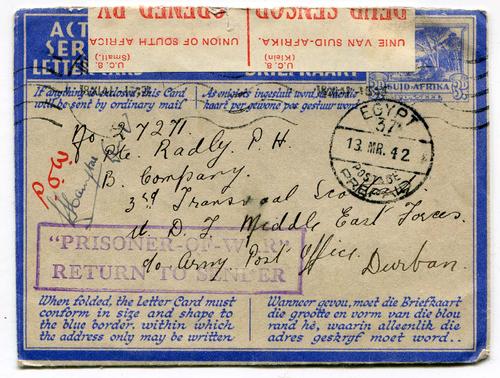 DEUR SENSOR
OPENED BY
UNIE VAN SUID-AFRIKA.
UNION OF SOUTH AFRICA
U.C. 8.
(Klein)
U.C. 8
(Small).
ACT
SER
LETTER
BRIEFKAART
SUID-AFRIKA
3D
3D
If anything is enclosed this Card
will be sent by ordinary mail
As enigiets ingesluit word
kaart per gewone pos gestuur word
EGYPT
37
13 MR. 42
POSTAGE
PREPAID
No 27271.
Pte Radly. P. H.
B. Company.
3rd Transvaal
U. D. F Middle East Forces.
c/o Army Post Office.
Durban.
P.O.W
"PRISONER-OF-WAR"
RETURN TO SENDER
When folded, the Letter Card must
conform in size and shape to
the blue border, within which
the address only may be written
Wanneer gevou, moet die Briefkaart
die grootte en vorm van die blou
rand hê, waarin alleenlik die
adres geskryf moet word..